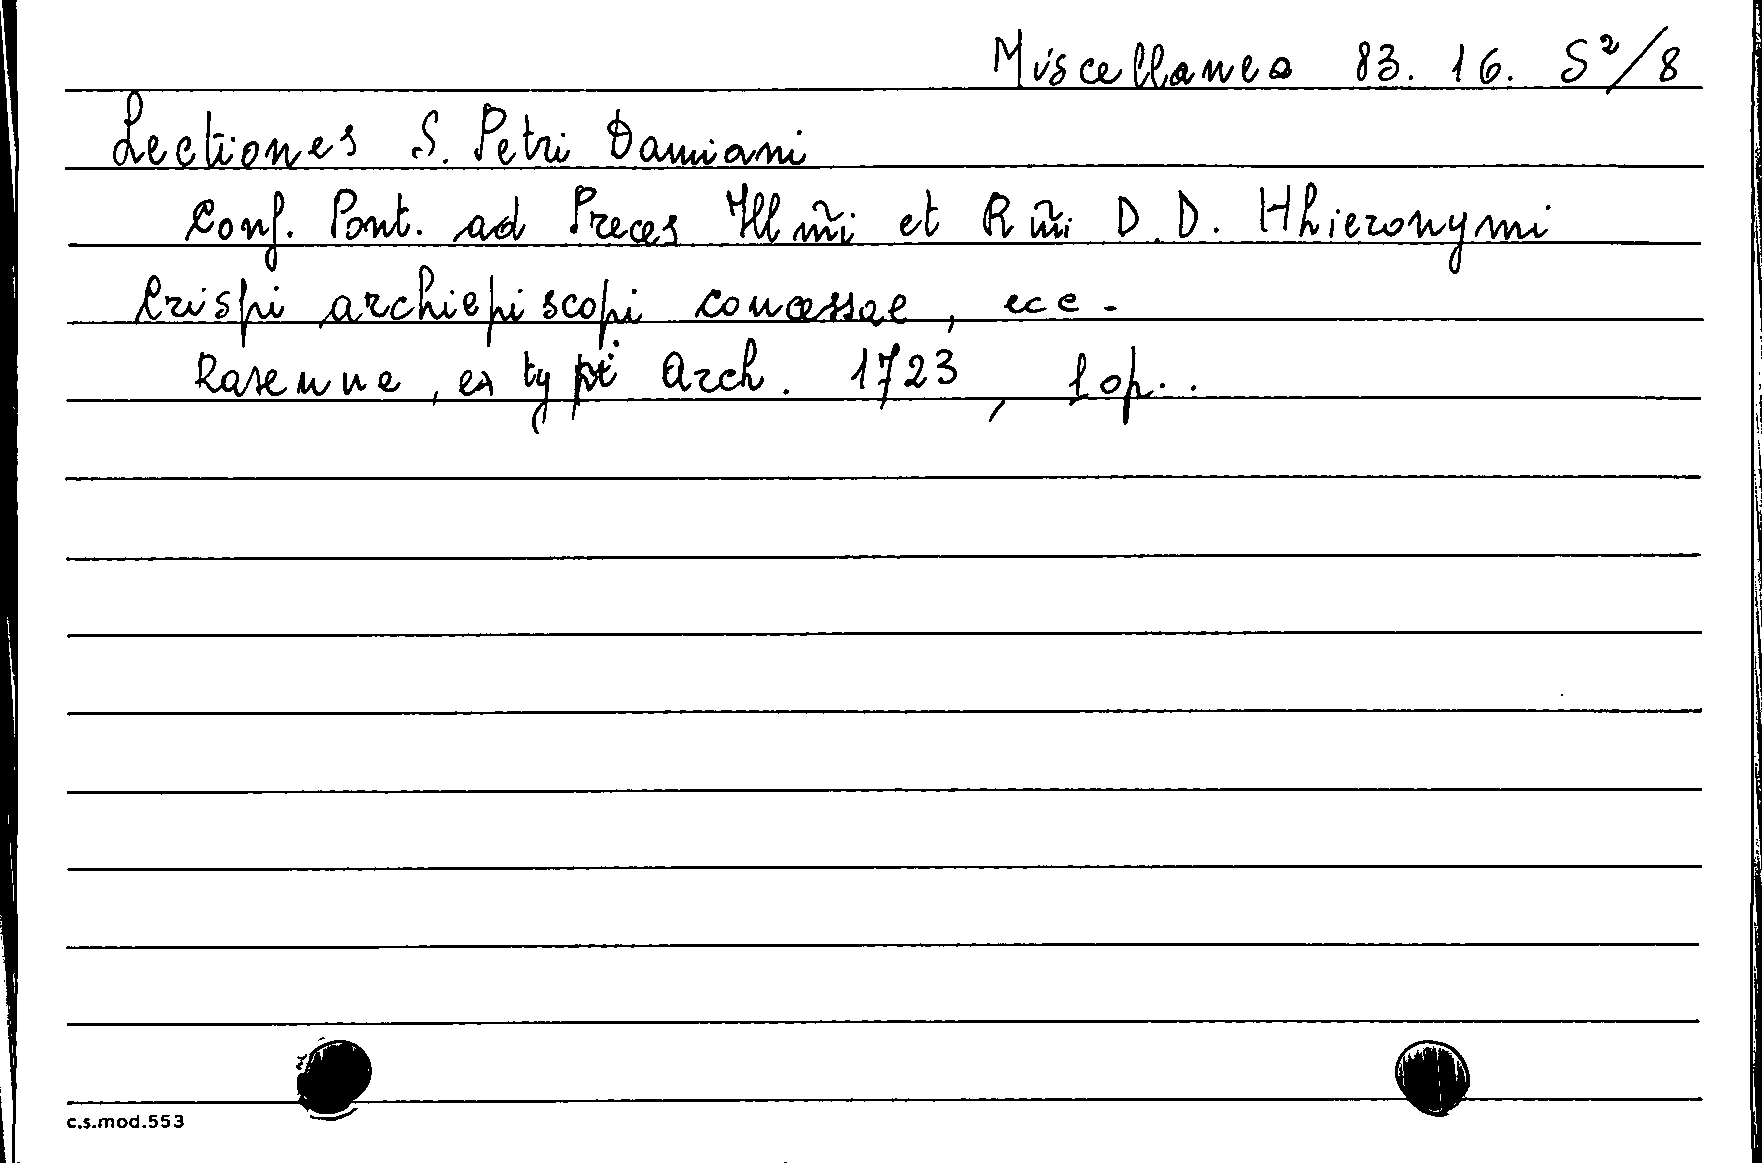 Miscellanea 83. 16. S²/8
Lectiones S. Petri Damiani
Conf. Pont. ad Preces Illm̃i et Rm̃i D. D. Hhieronymi
Crispi archiepiscopi concessae, ecc.
Ravenne, ex typ. Arch. 1723, 1 op.
c.s.mod.553